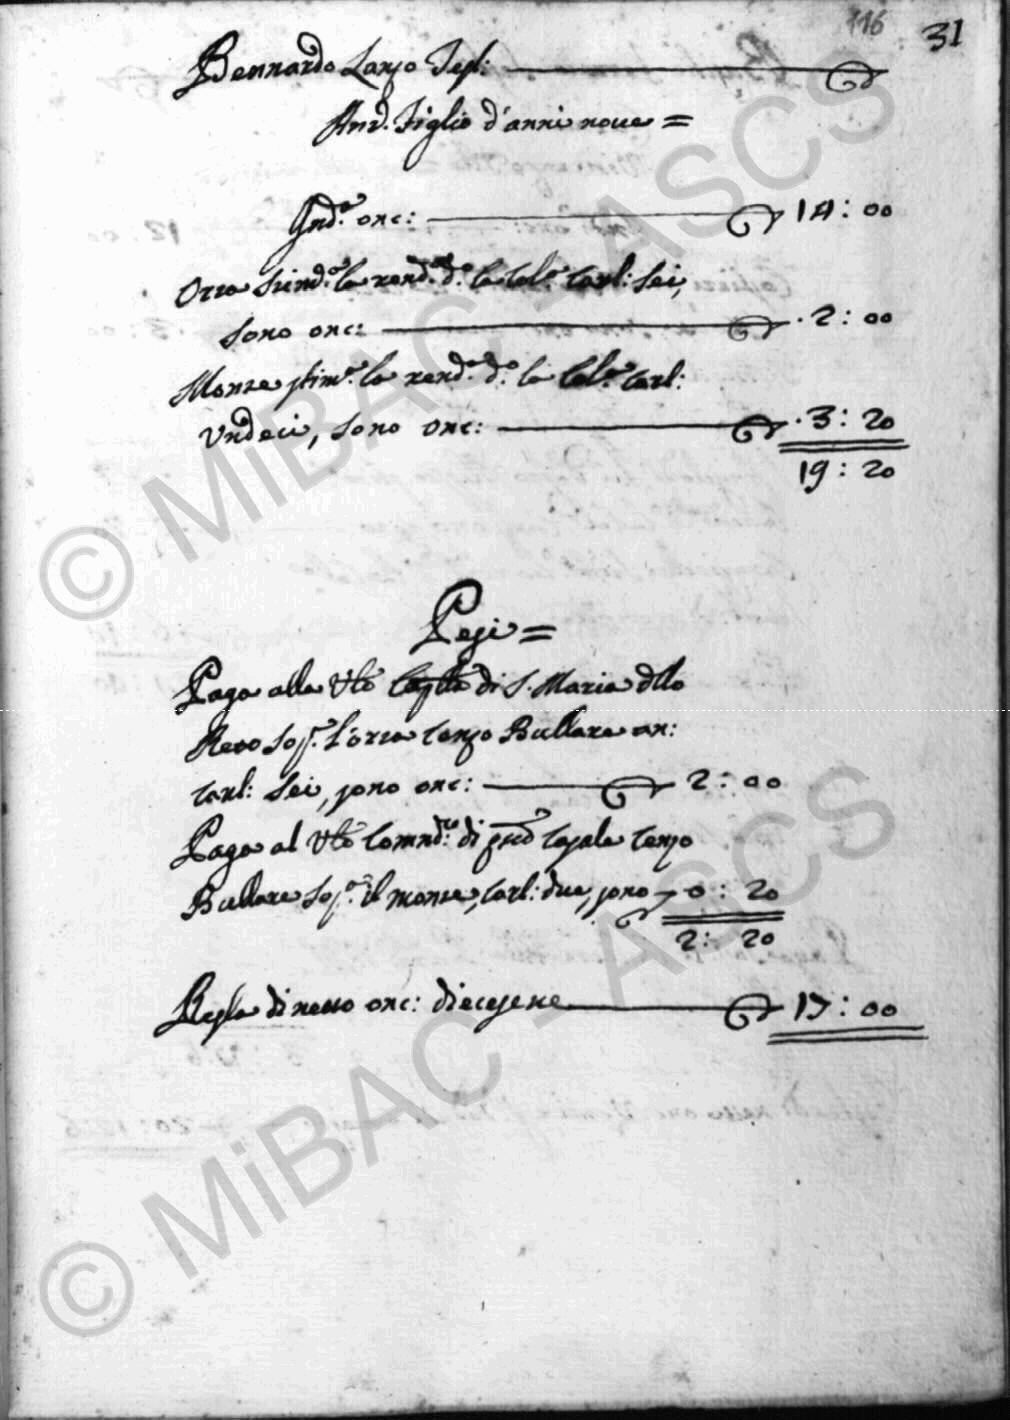 116 31
Bennardo Lanzo Tegl:
And.ª Figlio d'anni noue =
Ind.ª onc: 14: 00
Orto stimd.º la rend.ª d.ª la Col.ª Carl: Sei,
sono onc: . 2: 00
Monte stim.º la rend.ª d.ª la Col.ª Carl:
Undeci, sono onc: . 3: 20
19: 20
Pesi =
Paga alla Vble di S. Maria dllo
Reto Sop.ª l'orto Censo Bullare an:
Carl: Sei, sono onc: 2: 00
Paga al Vble Comnd.re di Casale Censo
Bullare Sop.ª il monte, Carl: due, sono 0: 20
2: 20
Resta di netto onc: diecesette 17: 00
© MiBAC _ ASCS
© MiBAC _ ASCS